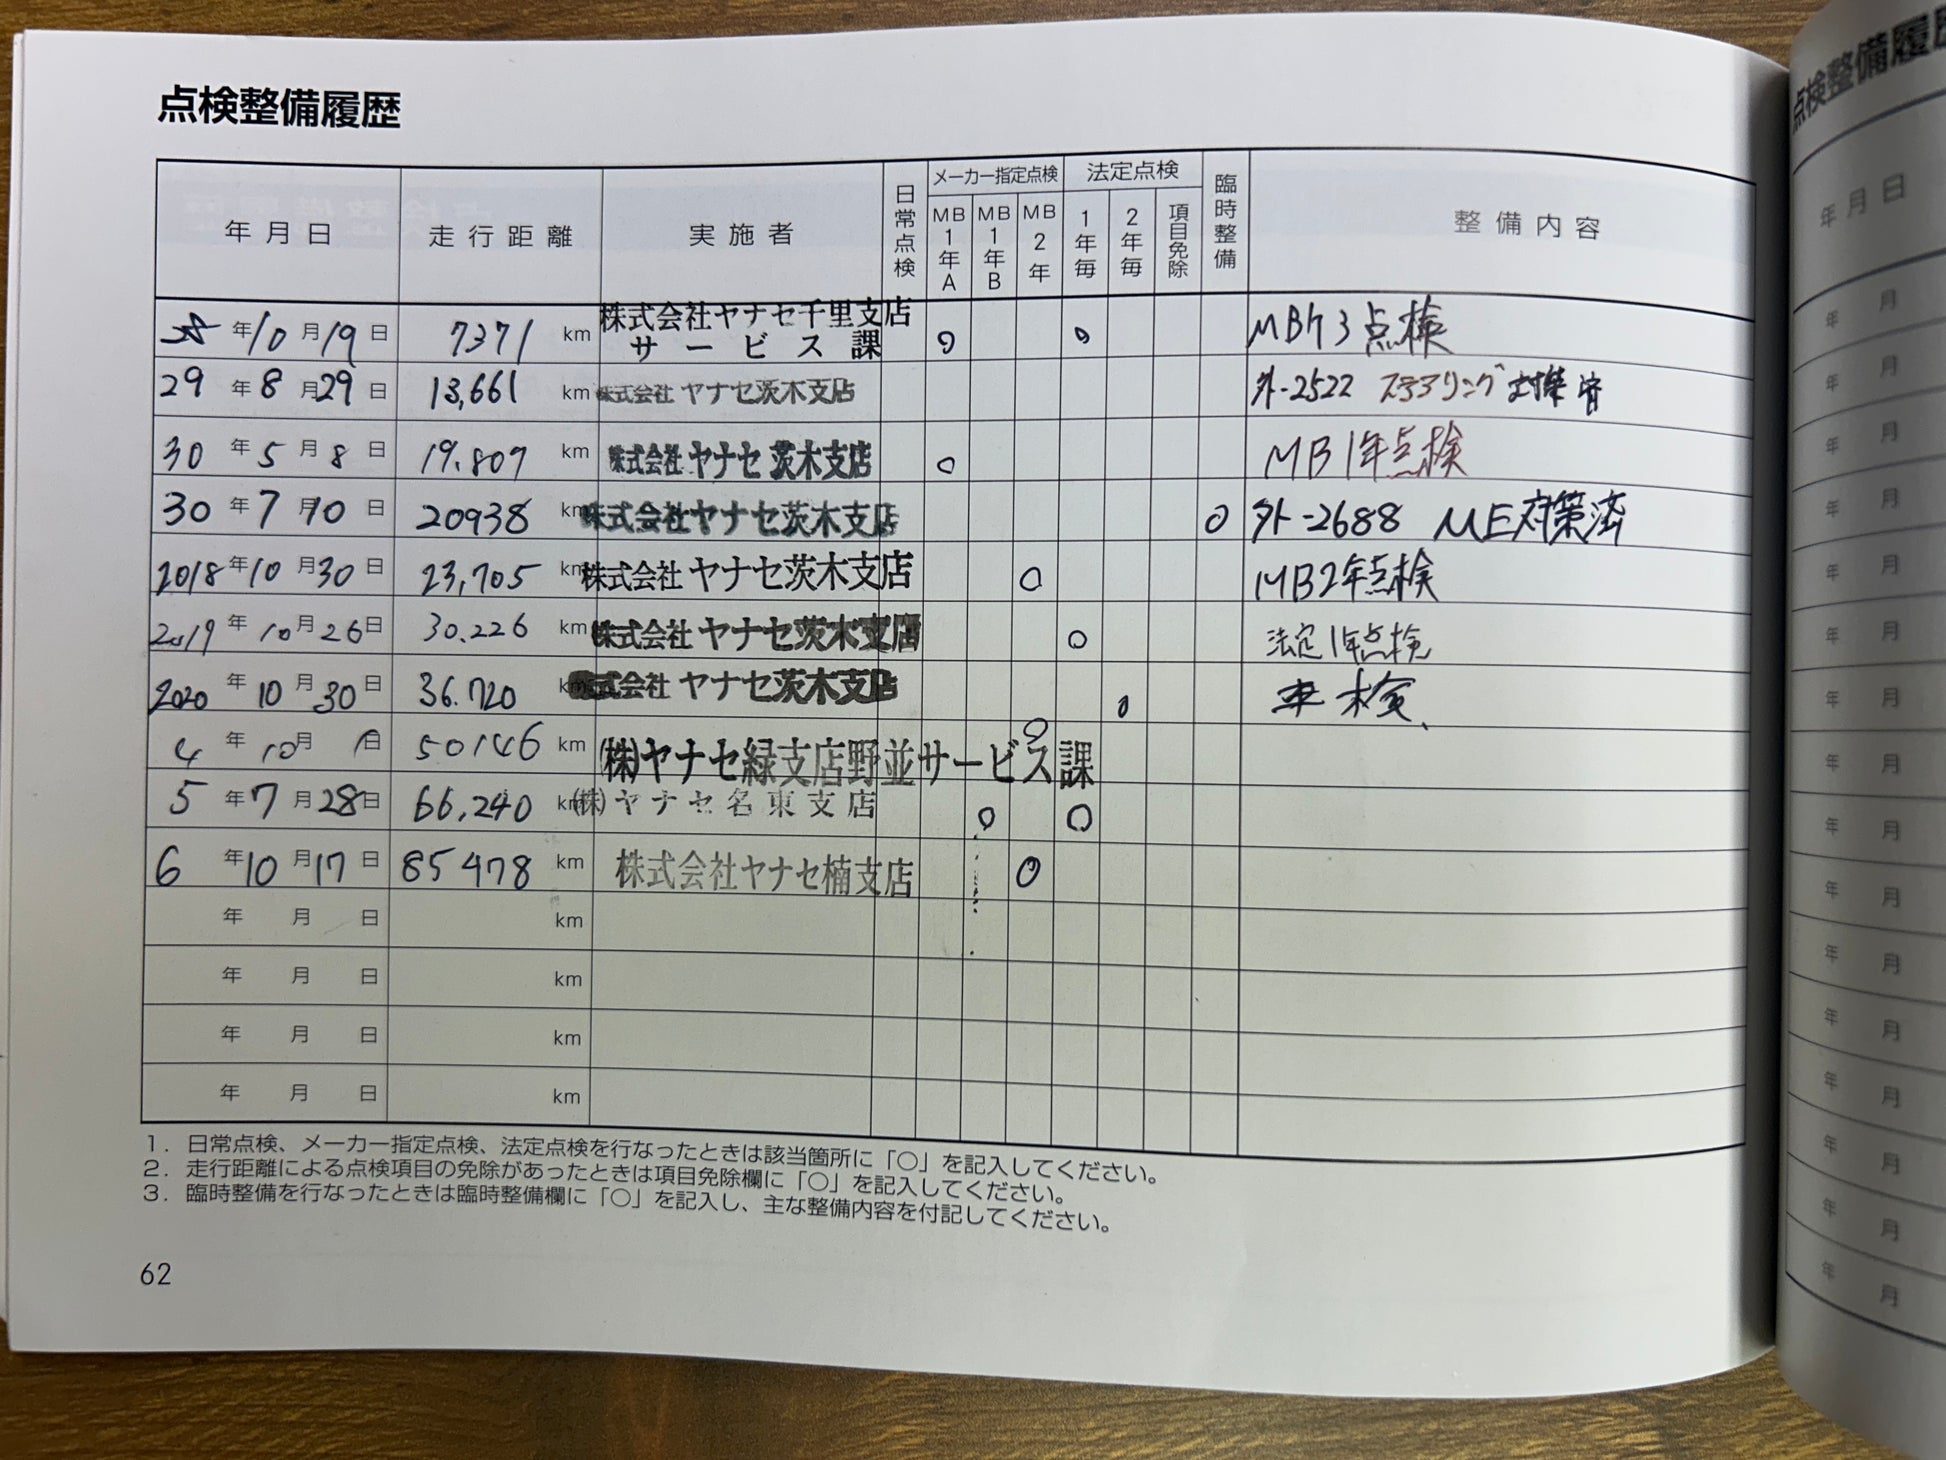 点検整備履歴
年月日 走行距離 実施者 日常点検 メーカー指定点検 MB1年A MB1年B MB2年 法定点検 1年毎 2年毎 項目免除 臨時整備 整備内容
28年10月19日 7371 km 株式会社ヤナセ千里支店 サービス課 ○ ○ MBケ3点検
29年8月29日 13,661 km 株式会社ヤナセ茨木支店 外-2522 ステアリング 対策済
30年5月8日 19.807 km 株式会社ヤナセ茨木支店 ○ MB1年点検
30年7月10日 20938 km 株式会社ヤナセ茨木支店 ○ 外-2688 ME対策済
2018年10月30日 23,705 km 株式会社ヤナセ茨木支店 ○ MB2年点検
2019年10月26日 30.226 km 株式会社ヤナセ茨木支店 ○ 法定1年点検
2020年10月30日 36.720 km 株式会社ヤナセ茨木支店 ○ 車検
4年10月1日 50146 km (株)ヤナセ緑支店野並サービス課 ○
5年7月28日 66,240 km (株)ヤナセ名東支店 ○ ○
6年10月17日 85478 km 株式会社ヤナセ楠支店 ○
年 月 日 km
年 月 日 km
年 月 日 km
年 月 日 km
1. 日常点検、メーカー指定点検、法定点検を行なったときは該当箇所に「○」を記入してください。
2. 走行距離による点検項目の免除があったときは項目免除欄に「○」を記入してください。
3. 臨時整備を行なったときは臨時整備欄に「○」を記入し、主な整備内容を付記してください。
62
点検整備履歴
年月日
年 月
年 月
年 月
年 月
年 月
年 月
年 月
年 月
年 月
年 月
年 月
年 月
年 月
年 月
年 月
年 月